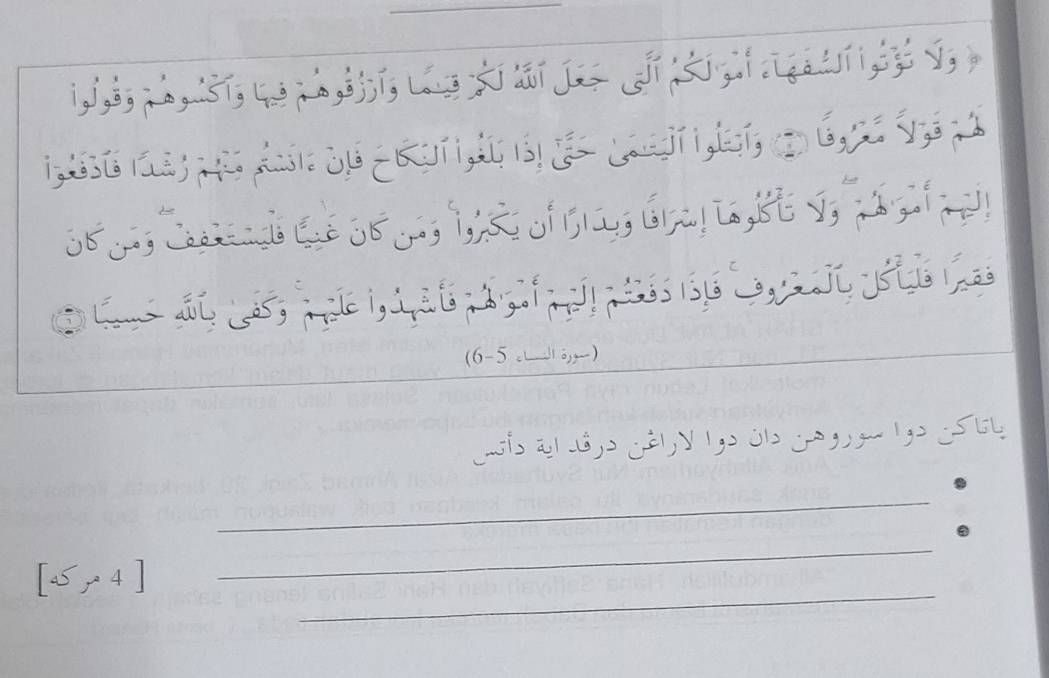 ﴿ وَلَا تُؤْتُوا۟ ٱلسُّفَهَآءَ أَمْوَٰلَكُمُ ٱلَّتِى جَعَلَ ٱللَّهُ لَكُمْ قِيَٰمًا وَٱرْزُقُوهُمْ فِيهَا وَٱكْسُوهُمْ وَقُولُوا۟
لَهُمْ قَوْلًا مَّعْرُوفًا ۝٥ وَٱبْتَلُوا۟ ٱلْيَتَٰمَىٰ حَتَّىٰٓ إِذَا بَلَغُوا۟ ٱلنِّكَاحَ فَإِنْ ءَانَسْتُم مِّنْهُمْ رُشْدًا فَٱدْفَعُوٓا۟
إِلَيْهِمْ أَمْوَٰلَهُمْ ۖ وَلَا تَأْكُلُوهَآ إِسْرَافًا وَبِدَارًا أَن يَكْبَرُوا۟ ۚ وَمَن كَانَ غَنِيًّا فَلْيَسْتَعْفِفْ ۖ وَمَن كَانَ
فَقِيرًا فَلْيَأْكُلْ بِٱلْمَعْرُوفِ ۚ فَإِذَا دَفَعْتُمْ إِلَيْهِمْ أَمْوَٰلَهُمْ فَأَشْهِدُوا۟ عَلَيْهِمْ ۚ وَكَفَىٰ بِٱللَّهِ حَسِيبًا ۝٦
(سورة النساء 5-6)
ڽاتاکن دوا سوروهن دان دوا لارڠن درڤد اية دأتس
[4 مرکه]